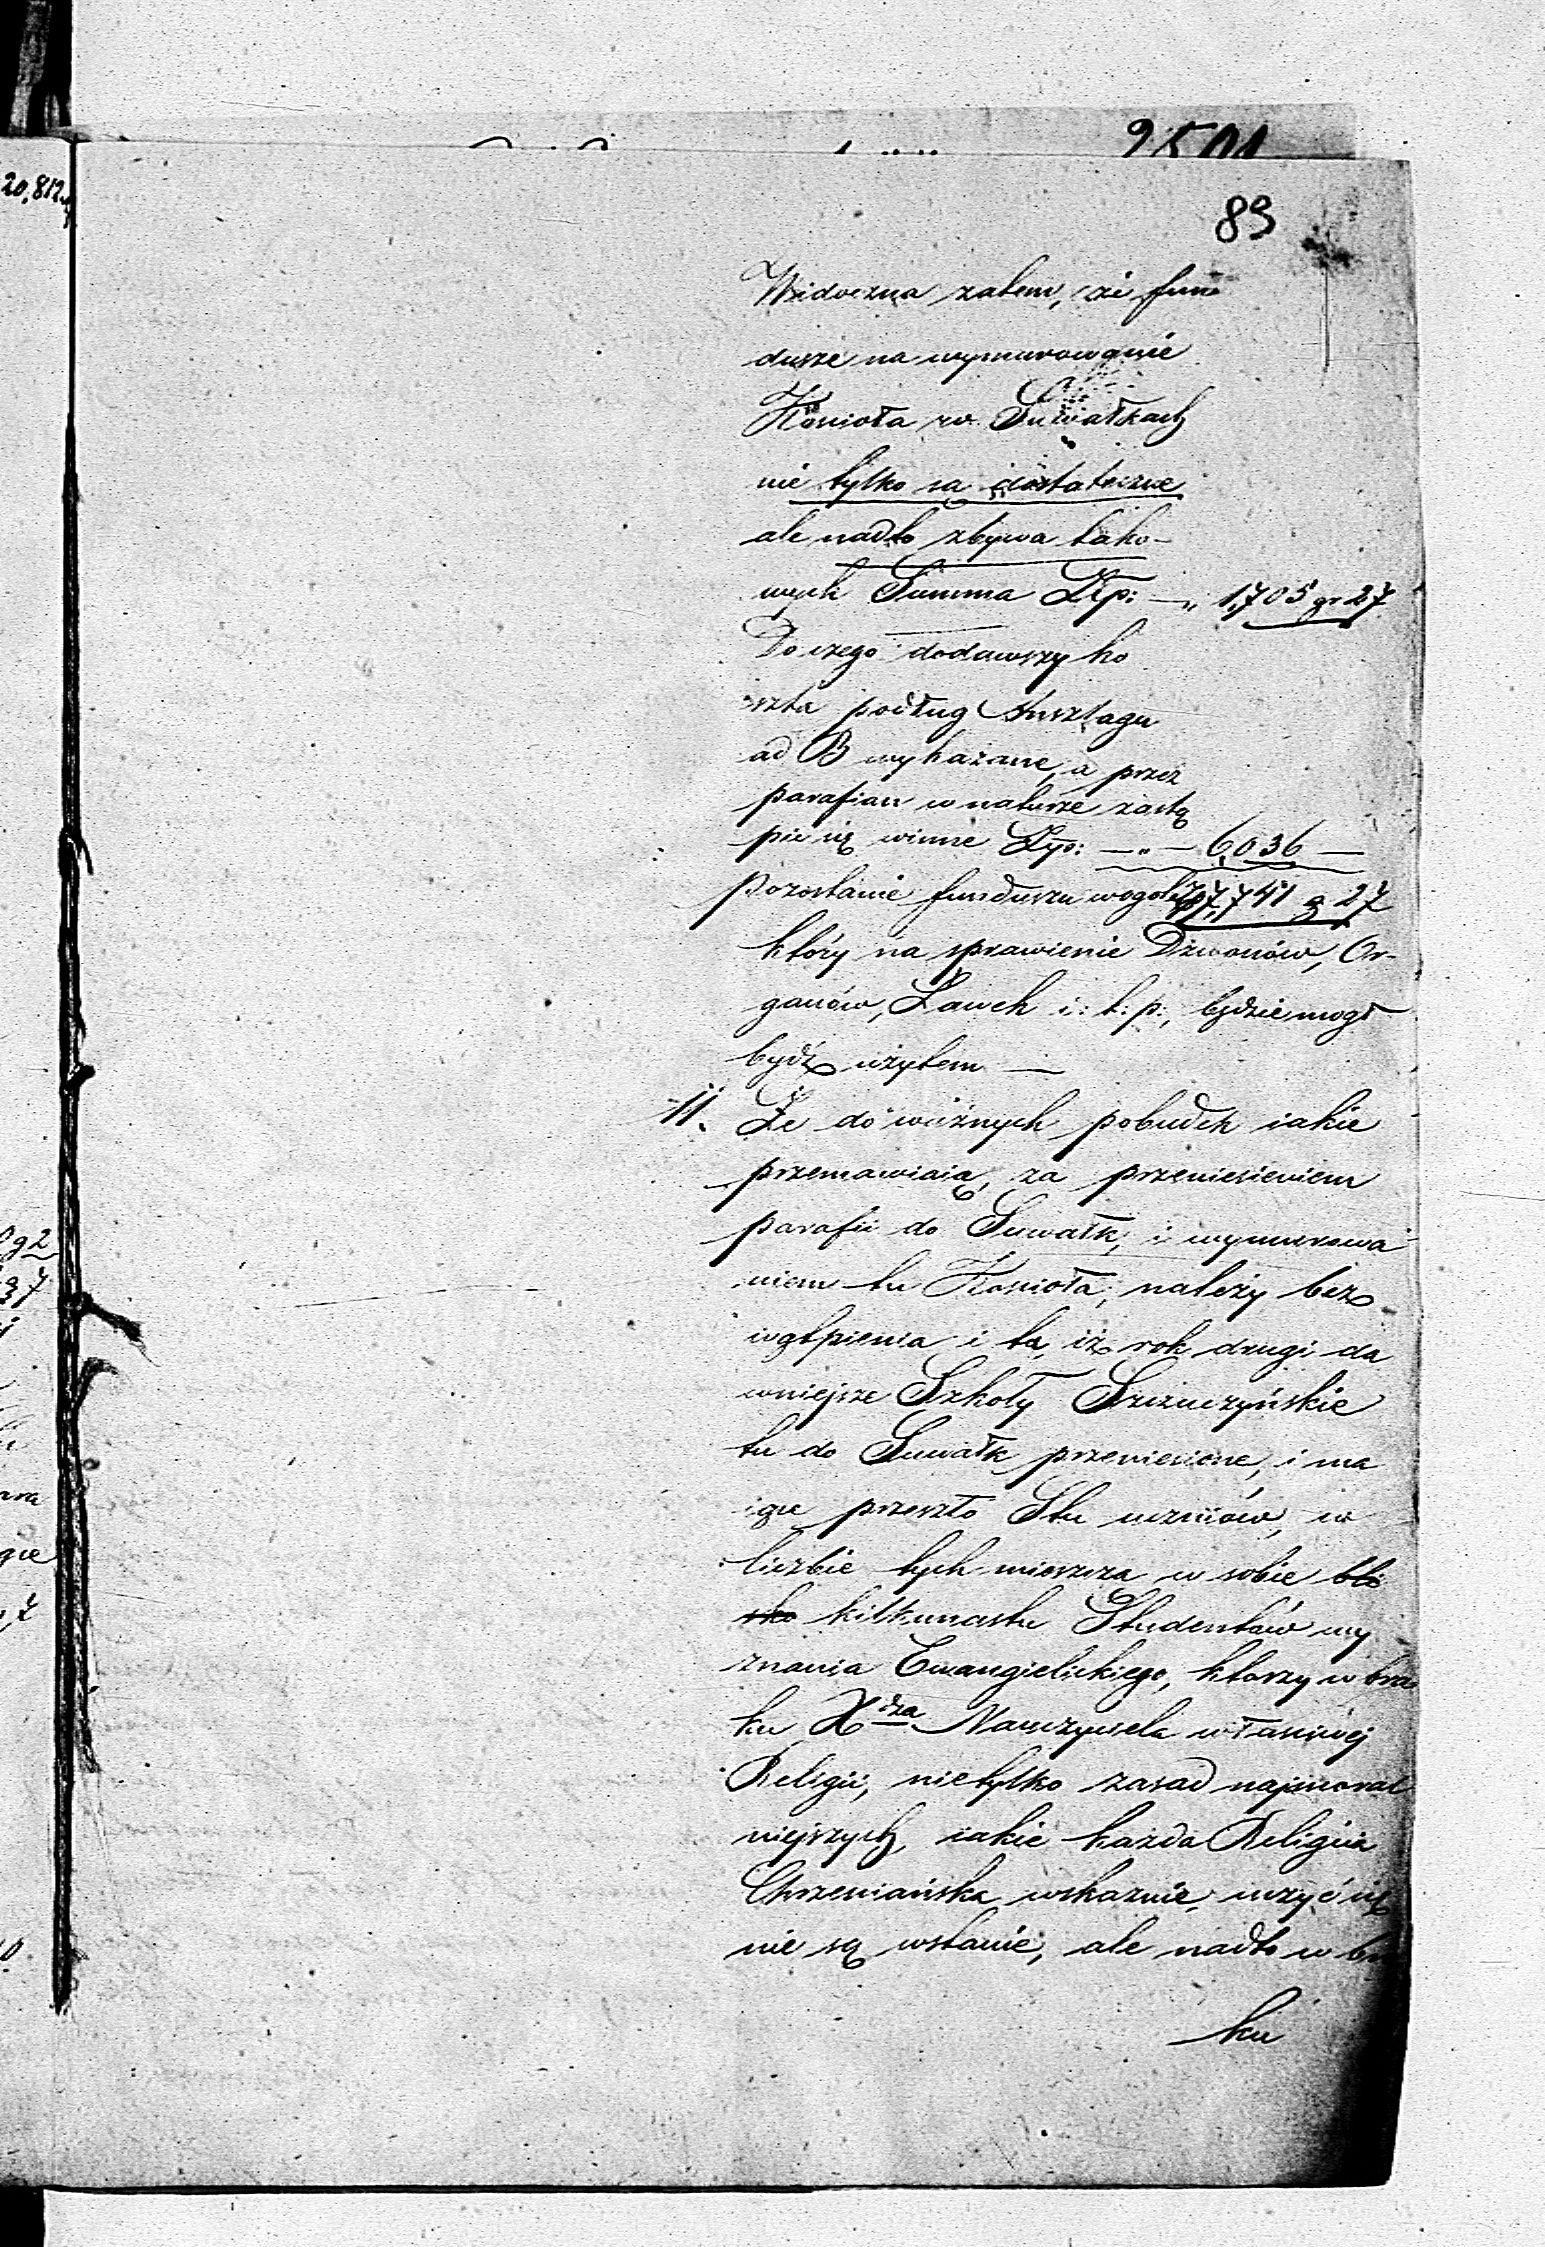 20,812
89
Widoczna zatem, że fun
dusze na wymurowanie
Kościoła w Suwałkach
nie tylko są dostateczne
ale nadto zbywa tako-
wych Summa Złp: — „ 1,705 gr 27
Do czego dodawszy ko
szta podług Anszlagu
ad B wykazane, a przez
parafian w naturze zastą
pić się winne Złp: — „ — 6,036 —
pozostanie funduszu wogóle 7,741 g 27
który na sprawienie Dzwonów, Or-
ganów, Ławek i: t: p:, będzie mógł
bydź użytem —
11. Że do ważnych pobudek iakie
przemawiaią, za przeniesieniem
parafii do Suwałk, i wymurowa
niem tu Kościoła, należy bez
wątpienia i ta, iż rok drugi da
wniejsze Szkoły Szczuczyńskie
tu do Suwałk przeniesione, i ma
iące przeszło Stu uczniów, w
liczbie tych mieszcza w sobie bli
sko kilkunastu Studentów wy
znania Ewangielickiego, którzy w bra
ku Xdza Nauczyciela właściwej
Religii, nietylko zasad najmoral
niejszych, iakie każda Religiia
Chrześciańska wskazuie, uczyć się
nie są wstanie, ale nadto w br
ku